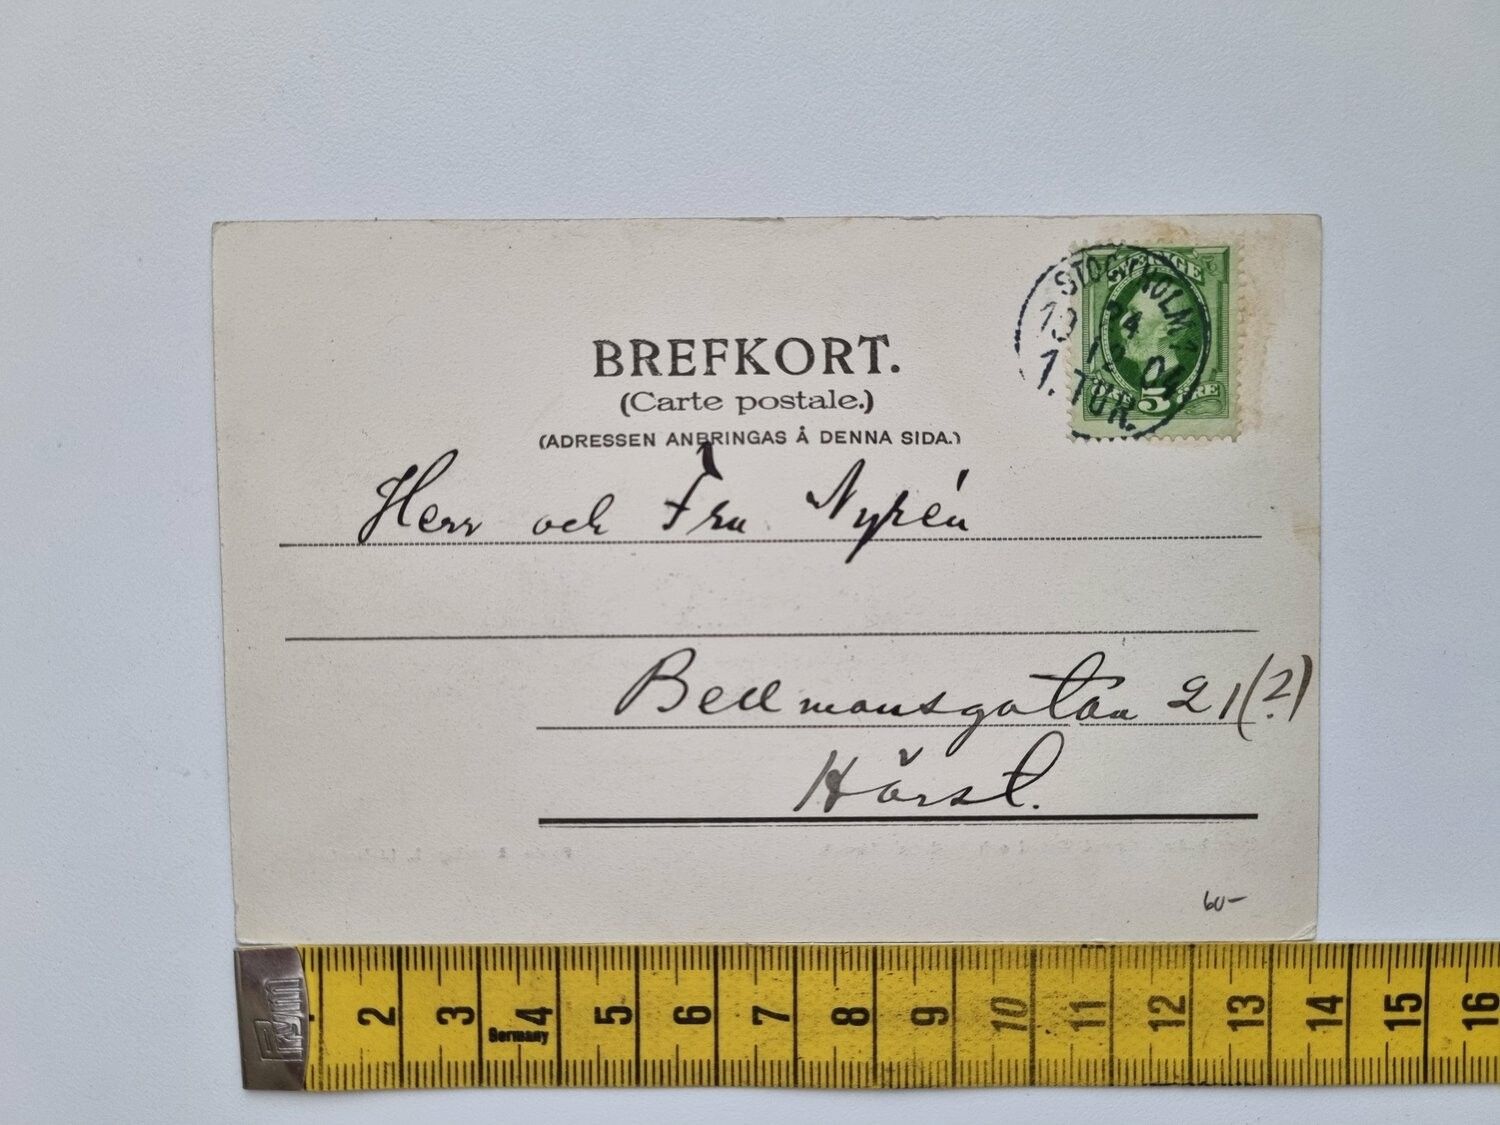 BREFKORT.
(Carte postale.)
(ADRESSEN ANBRINGAS Å DENNA SIDA.)
SVERIGE
5
ÖRE
STOCKHOLM 1
19 24 12 04
1. TUR.
Herr och Fru Nyrén
Bellmansgatan 21(?)
Härst.
60-
Prym
2 3 4 5 6 7 8 9 10 11 12 13 14 15 16
Germany